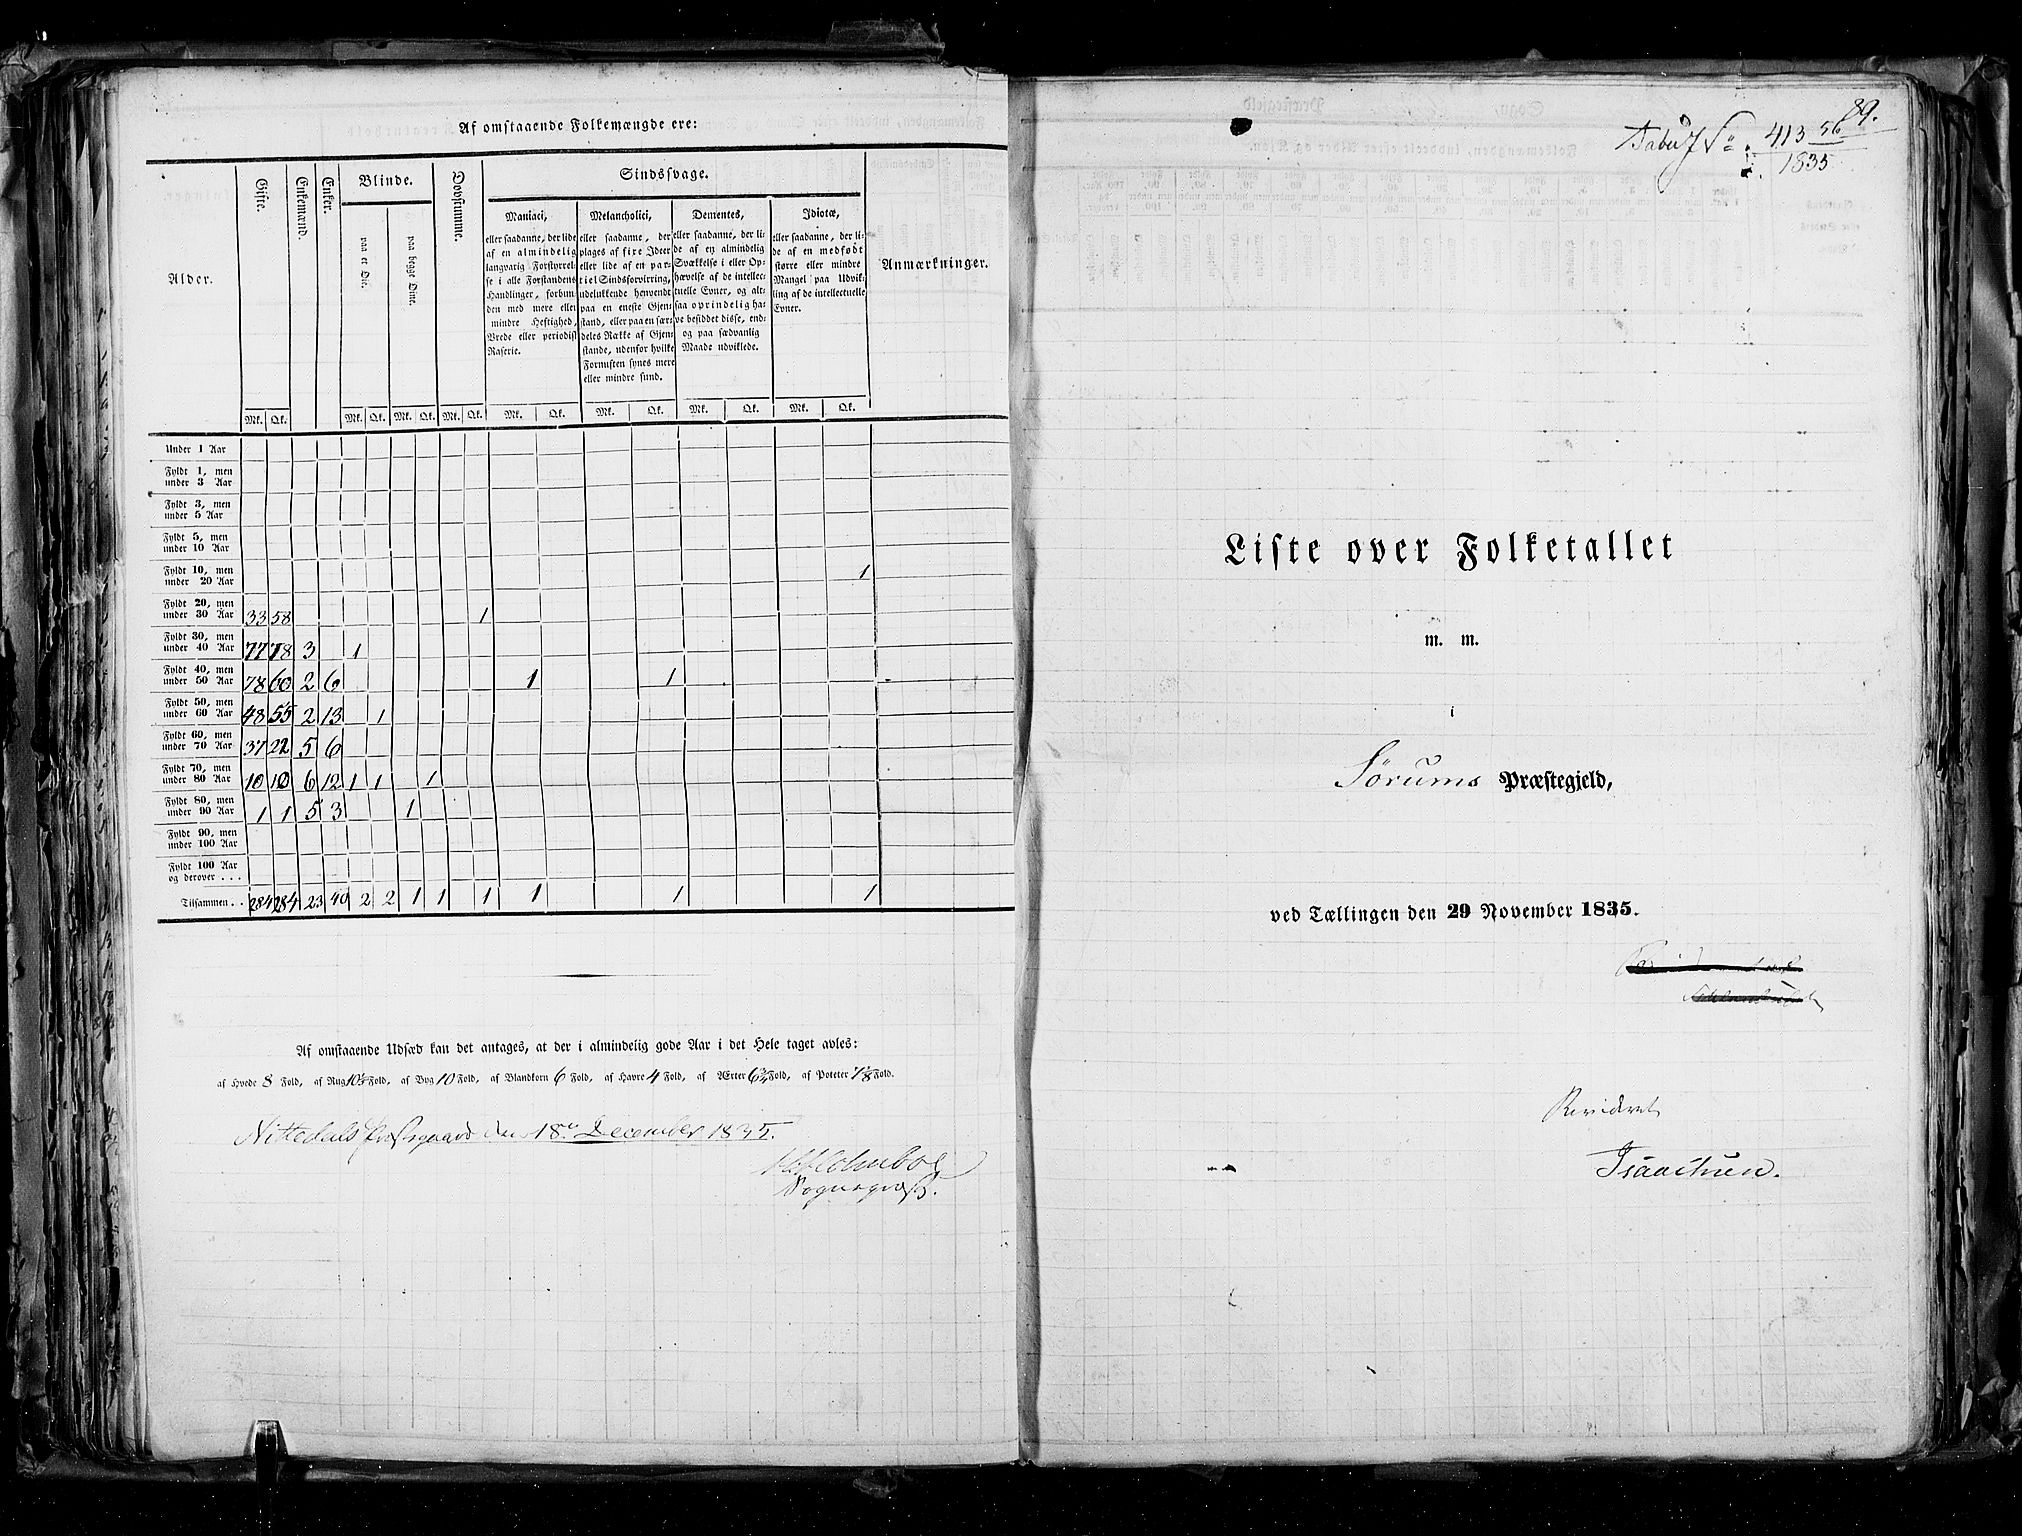 Af omstaaende Folkemængde ere:
Alder.
Gifte.
Enkemænd.
Enker.
Blinde.
paa et Øie.
paa begge Øine.
Døvstumme.
Sindssvage.
Maniaci,
eller saadanne, der lide
af en almindelig
langvarig Forstyrrel-
se i alle Forstandens
Handlinger, forbun-
den med mere eller
mindre Heftighed,
Vrede eller periodisk
Raserie.
Melancholici,
eller saadanne, der
plages af fixe Ideer
eller lide af en par-
tiel Sindsforvirring,
udelukkende henvendt
paa en eneste Gjen-
stand, eller paa en sær-
deles Række af Gjen-
stande, udenfor hvilke
Fornuften synes mere
eller mindre sund.
Dementes,
eller saadanne, der li-
de af en almindelig
Svækkelse i eller Op-
hævelse af de intellec-
tuelle Evner, og alt-
saa oprindelig ha-
ve besiddet disse, end-
og paa sædvanlig
Maade udviklede.
Idiotæ,
eller saadanne, der li-
de af en medfødt
større eller mindre
Mangel paa Udvik-
ling af de intellectuelle
Evner.
Anmærkninger.
Mk. Qk. Mk. Qk. Mk. Qk. Mk. Qk. Mk. Qk. Mk. Qk. Mk. Qk. Mk. Qk.
Under 1 Aar
Fyldt 1, men
under 3 Aar
Fyldt 3, men
under 5 Aar
Fyldt 5, men
under 10 Aar
Fyldt 10, men
under 20 Aar 1
Fyldt 20, men
under 30 Aar 33 58 1
Fyldt 30, men
under 40 Aar 77 78 3 1
Fyldt 40, men
under 50 Aar 78 60 2 6 1 1
Fyldt 50, men
under 60 Aar 48 55 2 13 1
Fyldt 60, men
under 70 Aar 37 22 5 6
Fyldt 70, men
under 80 Aar 10 10 6 12 1 1 1
Fyldt 80, men
under 90 Aar 1 1 5 3 1
Fyldt 90, men
under 100 Aar
Fyldt 100 Aar
og derover . . .
Tilsammen . . 284 284 23 40 2 2 1 1 1 1 1 1
Af omstaaende Udsæd kan det antages, at der i almindelig gode Aar i det Hele taget avles:
af Hvede 8 Fold, af Rug 10½ Fold, af Byg 10 Fold, af Blandkorn 6 Fold, af Havre 4 Fold, af Ærter 6¾ Fold, af Poteter 7⅛ Fold.
Nittedals Præstegaard den 18de December 1835.
Holmboe
Sognepræst.
89.
Tabu 413 56
1835
Liste over Folketallet
m. m.
i
Sørums Præstegjeld,
ved Tællingen den 29 November 1835.
Revideret
Isaachsen.